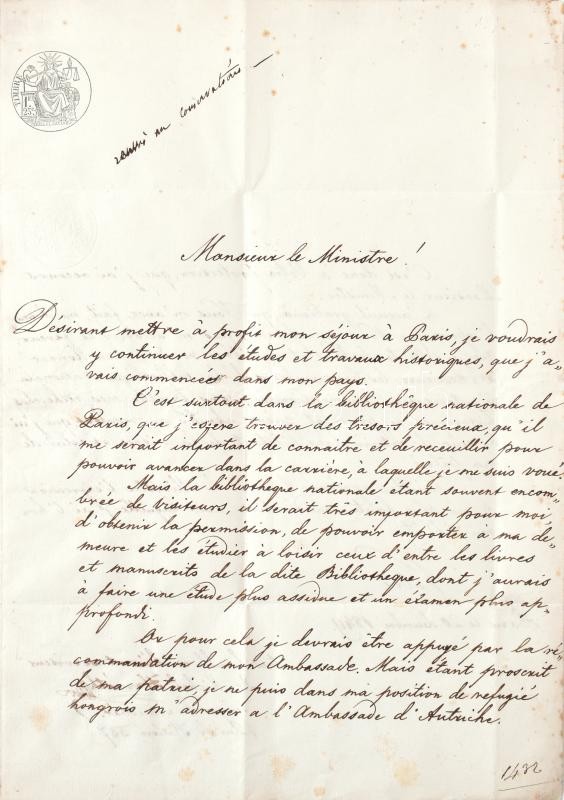 TIMBRE
1F.
25c.
au conservatoire —
Monsieur le Ministre!
Désirant mettre à profit mon séjour à Paris, je voudrais
y continuer les études et travaux historiques, que j'a-
vais commencées dans mon pays.
C'est surtout dans la bibliothêque nationale de
Paris, que j'espere trouver des trésors précieux, qu'il
me serait important de connaitre et de receuillir pour
pouvoir avancer dans la carrière, à laquelle je me suis voué.
Mais la bibliotheque nationale étant souvent encom-
brée de visiteurs, il serait très important pour moi
d'obtenir la permission, de pouvoir emporter à ma de-
meure et les étudier à loisir ceux d'entre les livres
et manuscrits de la dite Bibliotheque, dont j'aurais
à faire une étude plus assidue et un éxamen plus ap-
profondi.
Or pour cela je devrais être appuyé par la ré-
commandation de mon Ambassade. Mais étant proscrit
de ma patrie, je ne puis dans ma position de refugié
hongrois m'adresser a l'Ambassade d'Autriche.
1432